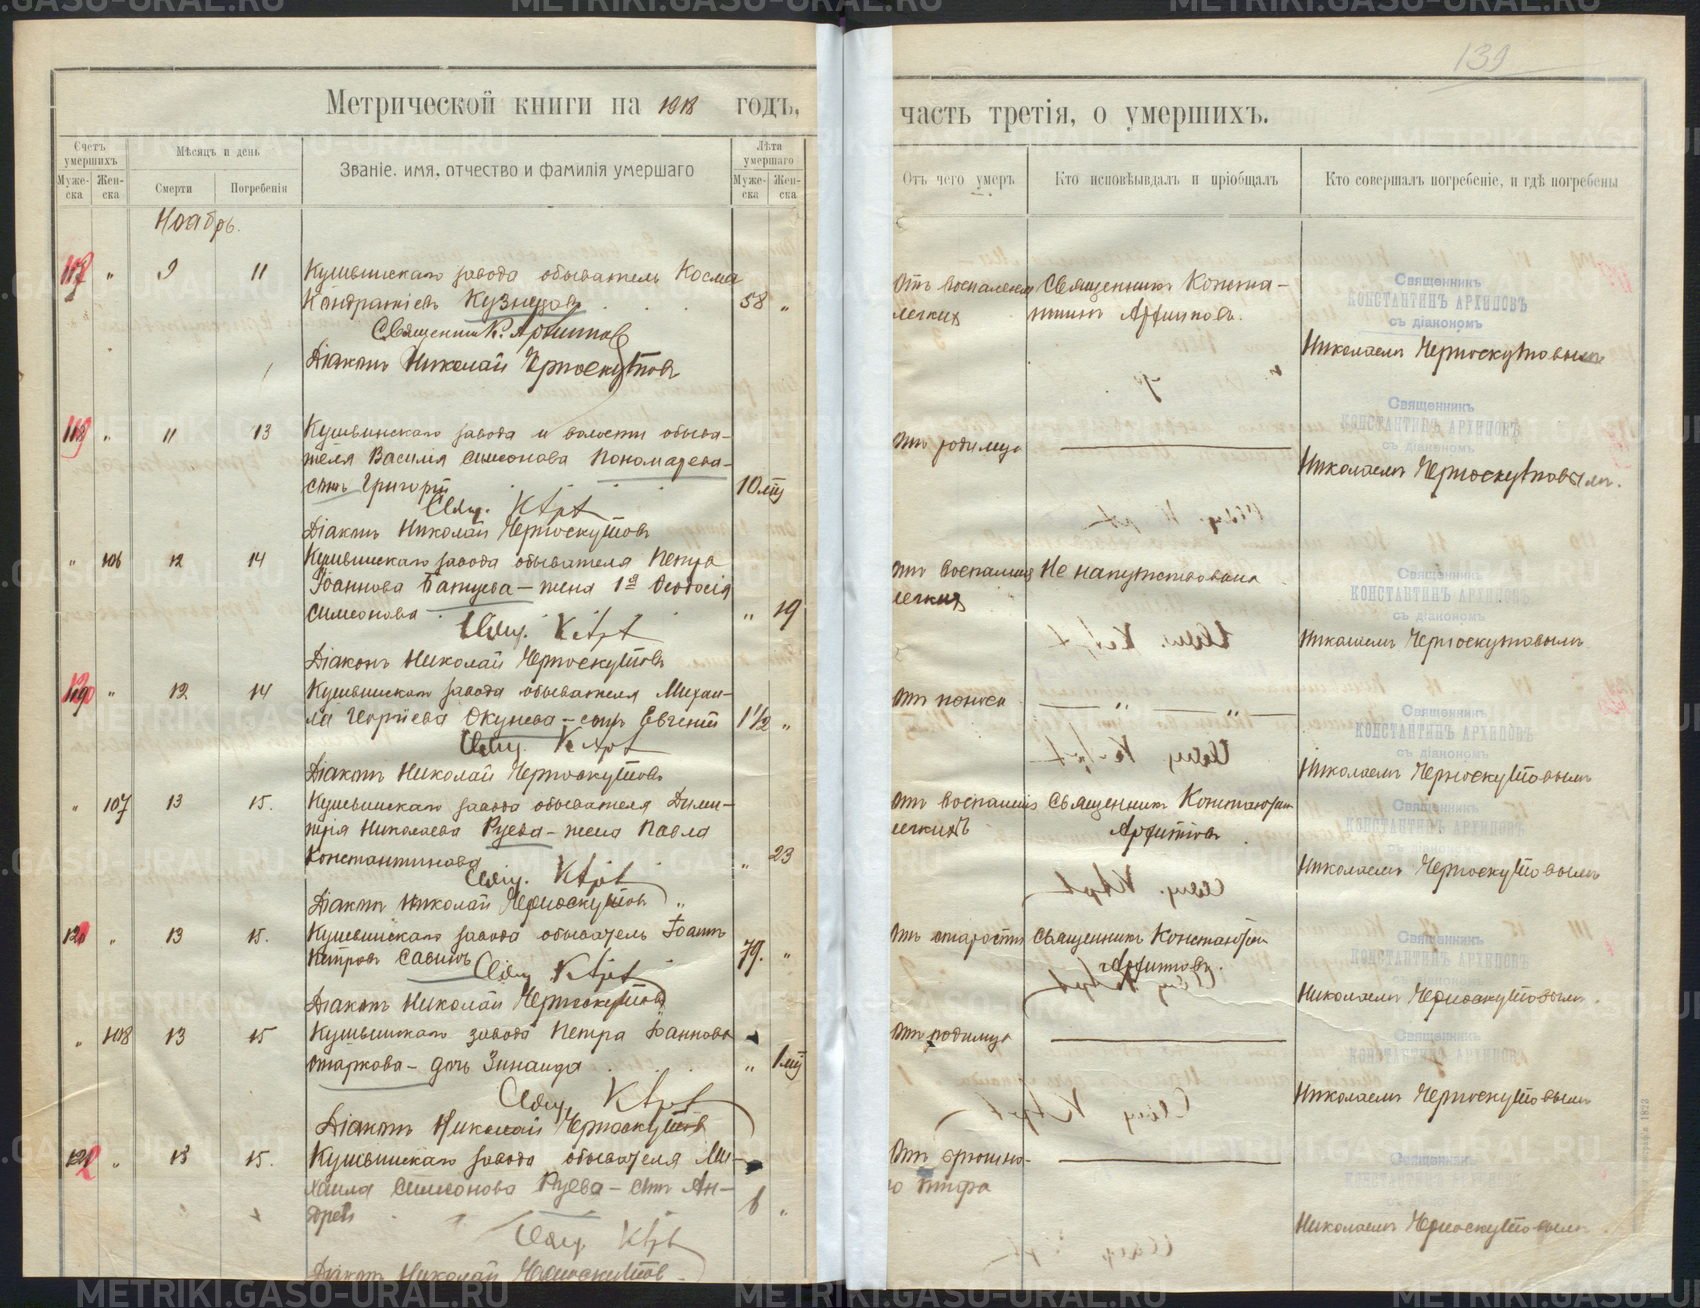 139
Метрической книги на 1918 годъ,
часть третія, о умершихъ.
Счетъ умершихъ
Мѣсяцъ и день
Званіе, имя, отчество и фамилія умершаго
Лѣта умершаго
Муже-ска
Жен-ска
Смерти
Погребенія
Муже-ска
Жен-ска
Отъ чего умеръ
Кто исповѣывдалъ и пріобщалъ
Кто совершалъ погребеніе, и гдѣ погребены
Ноябрь.
" 9 11 Кушвинскаго завода обыватель Косма
Кондратіевъ Кузнецовъ 58 "
Священник К. Архипов
Діаконъ Николай Черноскутовъ
Отъ воспаленія легкихъ
Священникъ Конста-
нтинъ Архиповъ.
Священникъ
КОНСТАНТИНЪ АРХИПОВЪ
съ діакономъ
Николаемъ Черноскутовымъ
118 " 11 13 Кушвинскаго завода и волости обыва-
теля Василія Симеонова Пономарева-
сынъ Григорій 10
Свящ. К Арх
Діаконъ Николай Черноскутовъ
Отъ родимца
Священникъ
КОНСТАНТИНЪ АРХИПОВЪ
съ діакономъ
Николаемъ Черноскутовымъ.
" 106 12 14 Кушвинскаго завода обывателя Петра
Іоаннова Батуева - жена 1я Ѳеодосія
Симеонова " 19
Свящ. К Арх
Діаконъ Николай Черноскутовъ
Отъ воспаленія легкихъ
Не напутствована
Священникъ
КОНСТАНТИНЪ АРХИПОВЪ
съ діакономъ
Николаемъ Черноскутовымъ
" 12 14 Кушвинскаго завода обывателя Михаи-
ла Георгіева Окунева - сынъ Евгеній 1 1/2 "
Свящ. К Арх
Діаконъ Николай Черноскутовъ
Отъ поноса
" "
Священникъ
КОНСТАНТИНЪ АРХИПОВЪ
съ діакономъ
Николаемъ Черноскутовымъ
" 107 13 15. Кушвинскаго завода обывателя Дими-
трія Николаева Руева - жена Павла
Константинова " 23
Свящ. К Арх
Діаконъ Николай Черноскутовъ
Отъ воспаленія легкихъ
Священникъ Константинъ
Архиповъ
Священникъ
КОНСТАНТИНЪ АРХИПОВЪ
съ діакономъ
Николаемъ Черноскутовымъ
" 13 15. Кушвинскаго завода обыватель Іоаннъ
Петровъ Савинъ 79. "
Свящ К Арх
Діаконъ Николай Черноскутовъ
Отъ старости
Священникъ Константинъ
Архиповъ.
Священникъ
КОНСТАНТИНЪ АРХИПОВЪ
съ діакономъ
Николаемъ Черноскутовымъ.
" 108 13 15 Кушвинскаго завода Петра Іоаннова
Старкова - дочь Зинаида " 1
Свящ К Арх
Діаконъ Николай Черноскутовъ
Отъ родимца
Священникъ
КОНСТАНТИНЪ АРХИПОВЪ
Николаемъ Черноскутовымъ
" 13 15. Кушвинскаго завода обывателя Ми-
хаила Симеонова Руева - сынъ Ан-
дрей 6 "
Свящ. К Арх
Діаконъ Николай Черноскутов
Отъ брюшно-
го тифа
Священникъ
КОНСТАНТИНЪ АРХИПОВЪ
Николаемъ Черноскутовымъ
METRIKI.GASO-URAL.RU